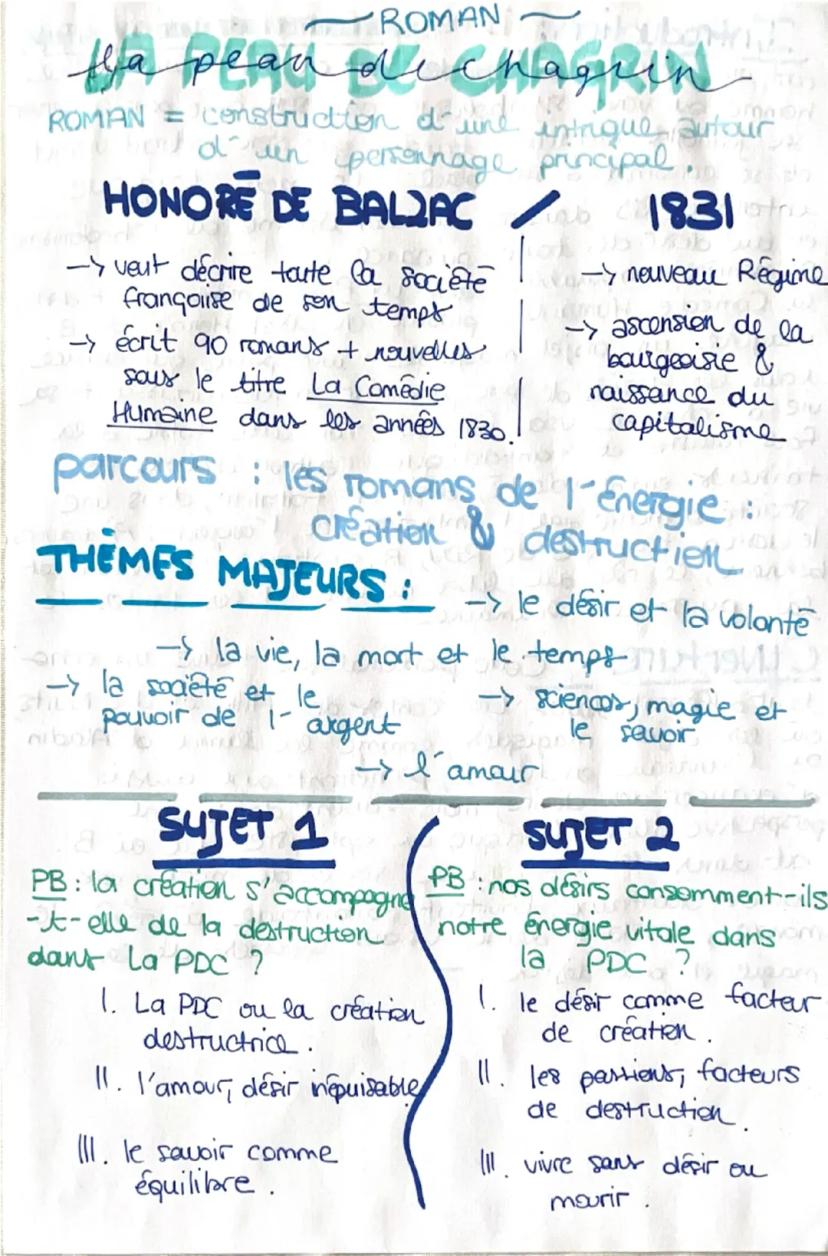 ROMAN
La peau de chagrin
ROMAN = construction d'une intrigue autour
d'un personnage principal
HONORÉ DE BALZAC / 1831
-> veut décrire toute la société
française de son temps
-> écrit 90 romans + nouvelles
sous le titre La Comédie
Humaine dans les années 1830.
-> nouveau Régime
-> ascension de la
bourgeoisie &
naissance du
capitalisme
parcours : les romans de l'énergie :
création & destruction
THÈMES MAJEURS :
-> le désir et la volonté
-> la vie, la mort et le temps
-> la société et le
pouvoir de l'argent
-> sciences, magie et
le savoir
-> l'amour
SUJET 1
PB : la création s'accompagne
-t-elle de la destruction
dans La PDC ?
I. La PDC ou la création
destructrice.
II. l'amour, désir inépuisable
III. le savoir comme
équilibre.
SUJET 2
PB : nos désirs consomment-ils
notre énergie vitale dans
la PDC ?
I. le désir comme facteur
de création.
II. les passions, facteurs
de destruction.
III. vivre sans désir ou
mourir.